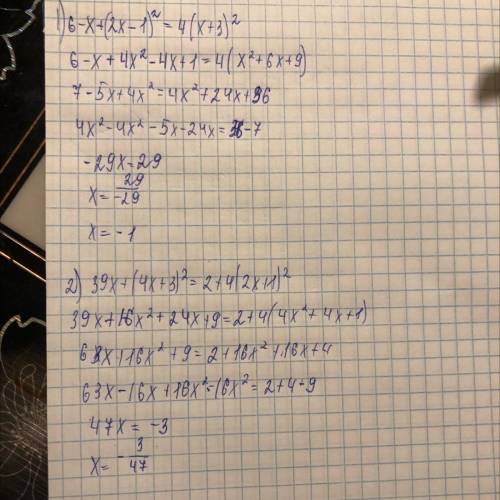 1) 6-x+(2x-1)² = 4(x+3)²
6-x+4x²-4x+1=4(x²+6x+9)
7-5x+4x²=4x²+24x+36
4x²-4x²-5x-24x=36-7
-29x=29
x= 29/-29
x=-1
2) 39x+(4x+3)²=2+4(2x+1)²
39x+16x²+24x+9=2+4(4x²+4x+1)
63x+16x²+9=2+16x²+16x+4
63x-16x+16x²-16x²=2+4-9
47x=-3
x= -3/47